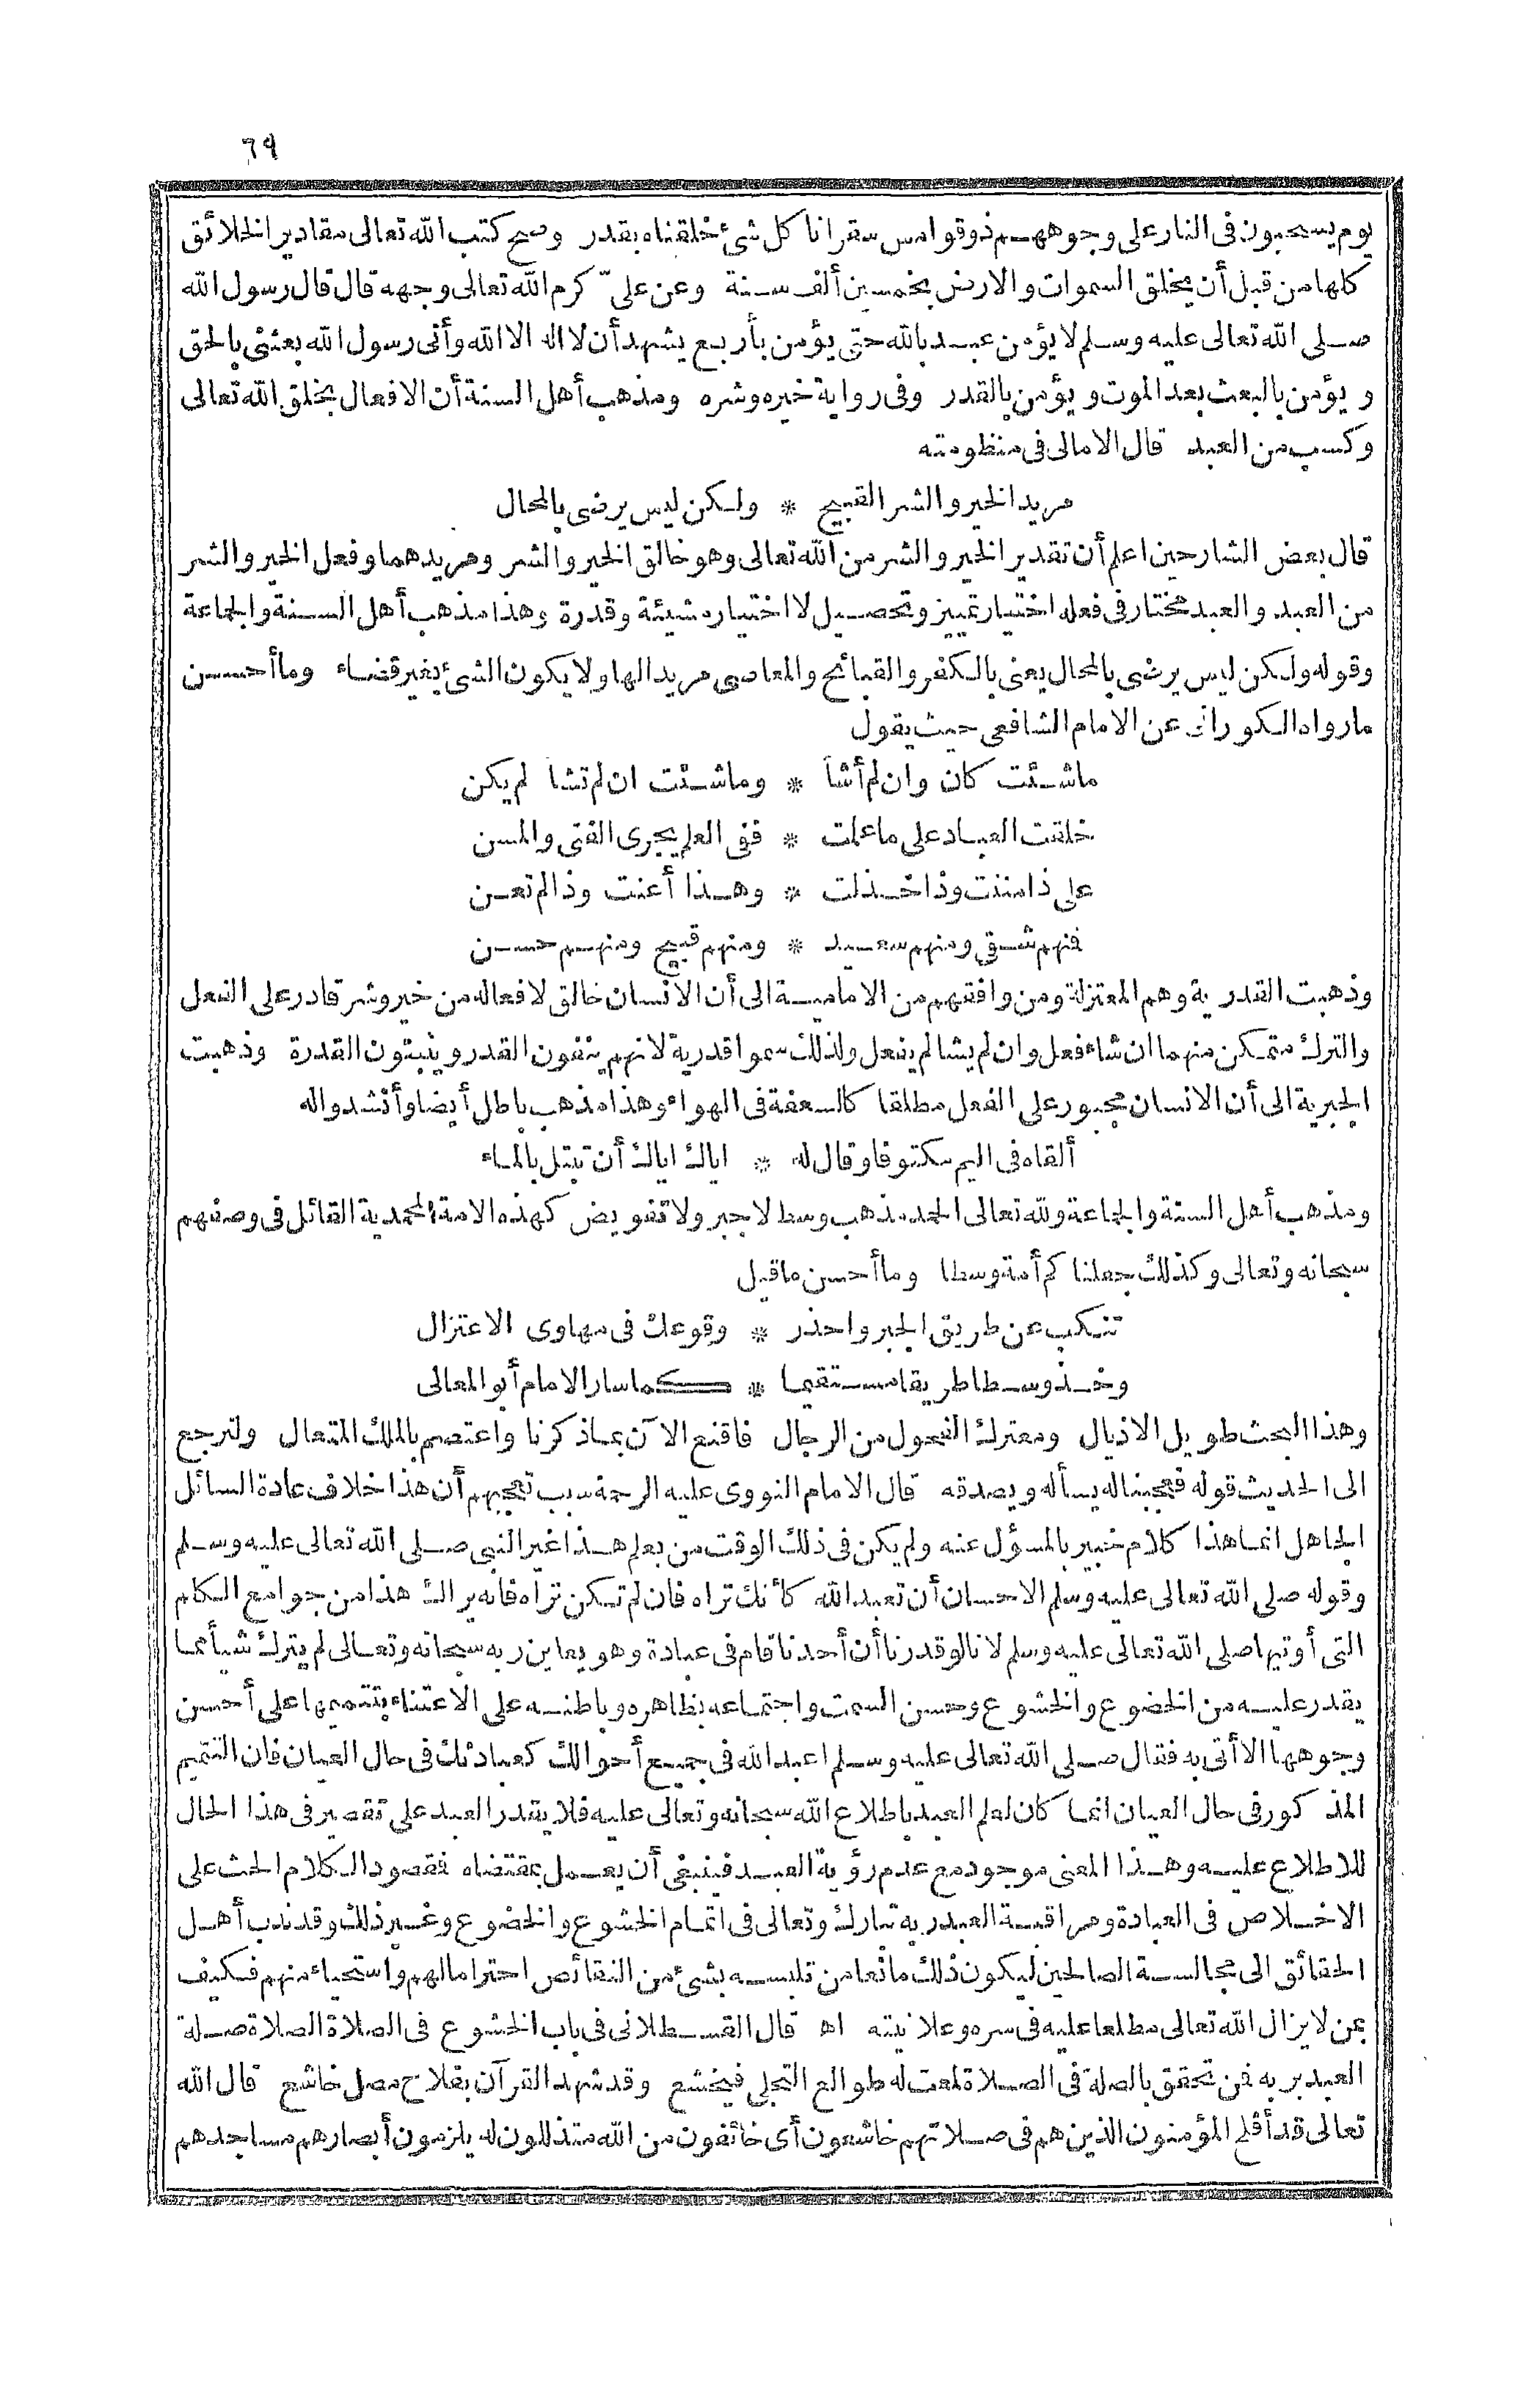 ٦٩
يوم يسحبون فى النار على وجوههم ذوقوا مس سقر انا كل شئ خلقناه بقدر وصح كتب الله تعالى مقادير الخلائق
كلها من قبل أن يخلق السموات والارض بخمسين ألف سنة وعن علىّ كرم الله تعالى وجهه قال قال رسول الله
صلى الله تعالى عليه وسلم لا يؤمن عبد بالله حتى يؤمن بأربع يشهد أن لا اله الا الله وأنى رسول الله بعثنى بالحق
ويؤمن بالبعث بعد الموت ويؤمن بالقدر وفى رواية خيره وشره ومذهب أهل السنة أن الافعال بخلق الله تعالى
وكسب من العبد قال الامالى فى منظومته
مريد الخير والشر القبيح * ولكن ليس يرضى بالمحال
قال بعض الشارحين اعلم أن تقدير الخير والشر من الله تعالى وهو خالق الخير والشر ومريدهما وفعل الخير والشر
من العبد والعبد مختار فى فعله اختيار تمييز وتحصيل لا اختيار مشيئة وقدرة وهذا مذهب أهل السنة والجماعة
وقوله ولكن ليس يرضى بالمحال يعنى بالكفر والقبائح والمعاصى مريد الها ولا يكون الشئ بغير قضاء وما أحسن
مارواه الكورانى عن الامام الشافعى حيث يقول
ماشئت كان وان لم أشأ * وماشئت ان لم تشا لم يكن
خلقت العباد على ماعلمت * ففى العلم يجرى الفتى والمسن
على ذا مننت وذا خذلت * وهذا أعنت وذا لم تعن
فمنهم شقى ومنهم سعيد * ومنهم قبيح ومنهم حسن
وذهبت القدرية وهم المعتزلة ومن وافقهم من الامامية الى أن الانسان خالق لافعاله من خير وشر قادر على الفعل
والترك متمكن منهما ان شاء فعل وان لم يشا لم يفعل ولذلك سموا قدرية لانهم ينفون القدر ويثبتون القدرة وذهبت
الجبرية الى أن الانسان مجبور على الفعل مطلقا كالسعفة فى الهواء وهذا مذهب باطل أيضا وأنشدوا له
ألقاه فى اليم مكتوفا وقال له * اياك اياك أن تبتل بالماء
ومذهب أهل السنة والجماعة ولله تعالى الحمد مذهب وسط لا جبر ولا تفويض كهذه الامة المحمدية القائل فى وصفهم
سبحانه وتعالى وكذلك جعلناكم أمة وسطا وما أحسن ماقيل
تنكب عن طريق الجبر واحذر * وقوعك فى مهاوى الاعتزال
وخذ وسطا طريقا مستقيما * كما سار الامام أبو المعالى
وهذا البحث طويل الاذيال ومعترك الفحول من الرجال فاقنع الآن بماذكرنا واعتصم بالملك المتعال ولنرجع
الى الحديث قوله فعجبنا له يسأله ويصدقه قال الامام النووى عليه الرحمة سبب تعجبهم أن هذا خلاف عادة السائل
الجاهل انما هذا كلام خبير بالمسؤل عنه ولم يكن فى ذلك الوقت من يعلم هذا غير النبى صلى الله تعالى عليه وسلم
وقوله صلى الله تعالى عليه وسلم الاحسان أن تعبد الله كأنك تراه فان لم تكن تراه فانه يراك هذا من جوامع الكلم
التى أوتيها صلى الله تعالى عليه وسلم لانا لو قدرنا أن أحدنا قام فى عبادة وهو يعاين ربه سبحانه وتعالى لم يترك شيأ مما
يقدر عليه من الخضوع والخشوع وحسن السمت واجتماعه بظاهره وباطنه على الاعتناء بتتميمها على أحسن
وجوهها الا أتى به فقال صلى الله تعالى عليه وسلم اعبد الله فى جميع أحوالك كعبادتك فى حال العيان فان التتميم
المذكور فى حال العيان انما كان لعلم العبد باطلاع الله سبحانه وتعالى عليه فلا يقدر العبد على تقصير فى هذا الحال
للاطلاع عليه وهذا المعنى موجود مع عدم رؤية العبد فينبغى أن يعمل بمقتضاه فمقصود الكلام الحث على
الاخلاص فى العبادة ومراقبة العبد ربه تبارك وتعالى فى اتمام الخشوع والخضوع وغير ذلك وقد ندب أهل
الحقائق الى مجالسة الصالحين ليكون ذلك مانعا من تلبسه بشئ من النقائص احتراما لهم واستحياء منهم فكيف
بمن لا يزال الله تعالى مطلعا عليه فى سره وعلانيته اهـ قال القسطلانى فى باب الخشوع فى الصلاة الصلاة صلة
العبد بربه فمن تحقق بالصلة فى الصلاة لمعت له طوالع التجلى فيخشع وقد شهد القرآن بفلاح مصل خاشع قال الله
تعالى قد أفلح المؤمنون الذين هم فى صلاتهم خاشعون أى خائفون من الله متذللون له يلزمون أبصارهم مساجدهم